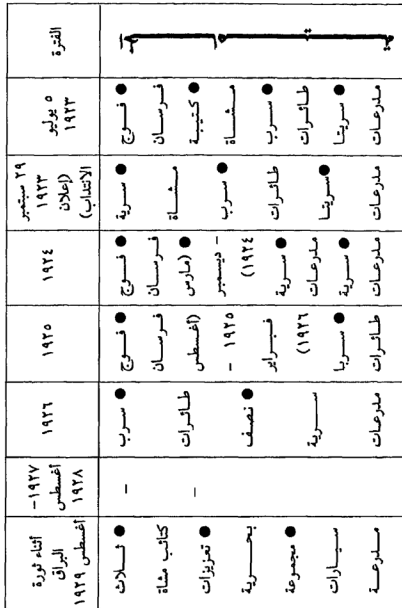 الفترة
٥ يوليو
١٩٢٣
● فوج
فرسان
● كتيبة
مشاة
● سرب
طائرات
● سريتا
مدرعات
٢٩ سبتمبر
١٩٢٣
(إعلان
الانتداب)
● سرية
مشاة
● سرب
طائرات
● سريتا
مدرعات
١٩٢٤
● فوج
فرسان
(مارس
- ديسمبر
١٩٢٤)
● سرية
مدرعات
● سرية
مدرعات
١٩٢٥
● فوج
فرسان
(أغسطس
١٩٢٥ -
فبراير
١٩٢٦)
● سربا
طائرات
١٩٢٦
● سرب
طائرات
● نصف
سرية
مدرعات
أغسطس
١٩٢٧-
١٩٢٨
-
-
أثناء ثورة
البراق
أغسطس ١٩٢٩
● ثلاث
كتائب مشاة
● تعزيزات
بحرية
● مجموعة
سيارات
مدرعة